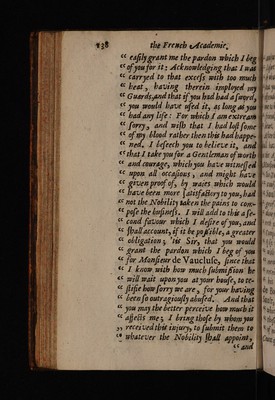 138 the French Academie,
“ easily grant me the pardon which I beg
“ of you for it: Acknowledging that I was
“ carryed to that excess with too much
“ heat, having therein imployed my
“ Guards, and that if you had had a sword,
“ you would have used it, as long as you
“ had any life: For which I am extream
“ sorry, and wish that I had lost some
“ of my blood rather then this had happe-
“ ned. I beseech you to believe it, and
“ that I take you for a Gentleman of worth
“ and courage, which you have witnessed
“ upon all occasions, and might have
“ given proof of, by waies which would
“ have been more satisfactory to you, had
“ not the Nobility taken the pains to com-
“ pose the business. I will add to this a se-
“ cond favour which I desire of you, and
“ shall account, if it be possible, a greater
“ obligation; 'tis Sir, that you would
“ grant the pardon which I beg of you
“ for Monsieur de Vaucluse, since that
“ I know with how much submission he
“ will wait upon you at your house, to te-
“ stifie how sorry we are, for your having
“ been so outragiously abused. And that
“ you may the better perceive how much it
“ affects me; I bring those by whom you
„ received this injury, to submit them to
“ whatever the Nobility shall appoint,
“ and